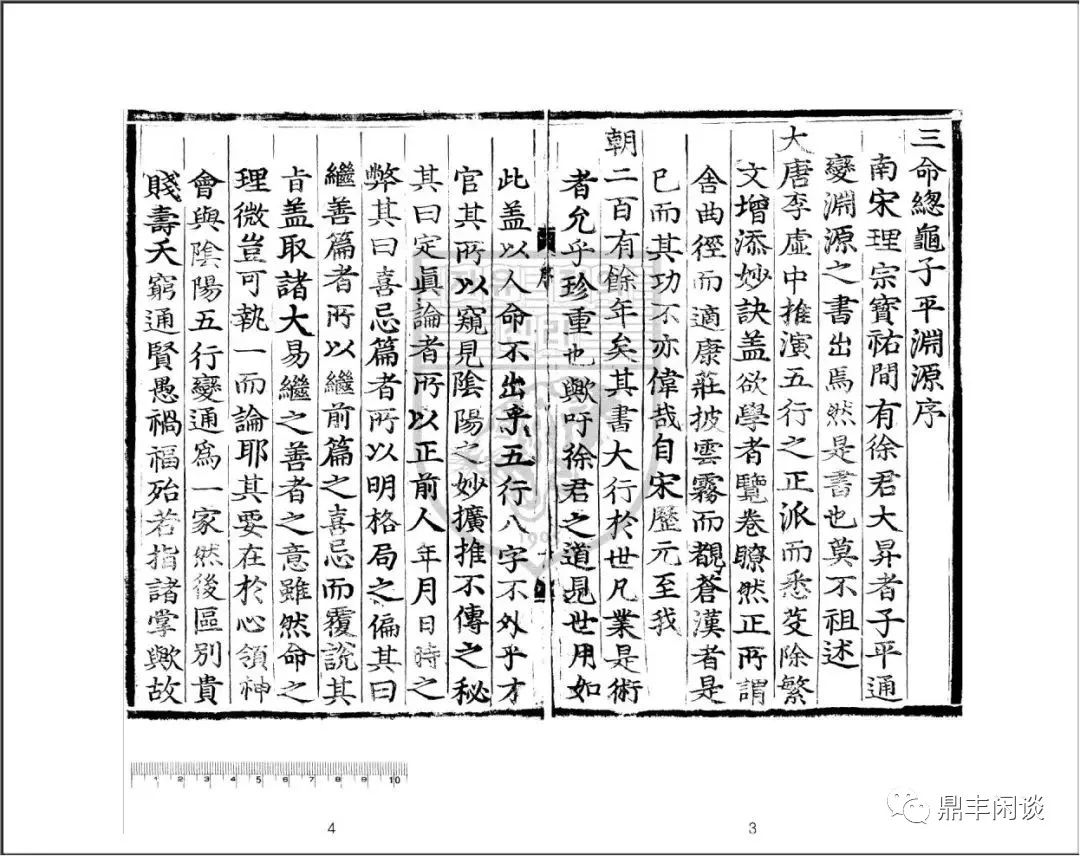 三命總龜子平淵源序
南宋理宗寳祐間有徐君大昇者子平通
變淵源之書出焉然是書也莫不祖述
大唐李虛中推演五行之正派而悉芟除繁
文增添妙訣盖欲學者覽卷瞭然正所謂
舍曲徑而適康莊披雲霧而覩蒼漢者是
已而其功不亦偉哉自宋歷元至我
朝二百有餘年矣其書大行於世凡業是術
者允乎珍重也歟吁徐君之道見世用如
序
此盖以人命不出乎五行八字不外乎才
官其所以窺見陰陽之妙擴推不傳之秘
其曰定眞論者所以正前人年月日時之
弊其曰喜忌篇者所以明格局之偏其曰
繼善篇者所以繼前篇之喜忌而覆說其
㫖盖取諸大易繼之善者之意雖然命之
理微豈可執一而論耶其要在於心領神
會與陰陽五行變通為一家然後區別貴
賤壽夭窮通賢愚禍福殆若指諸掌歟故
1 2 3 4 5 6 7 8 9 10
4
3
鼎丰闲谈